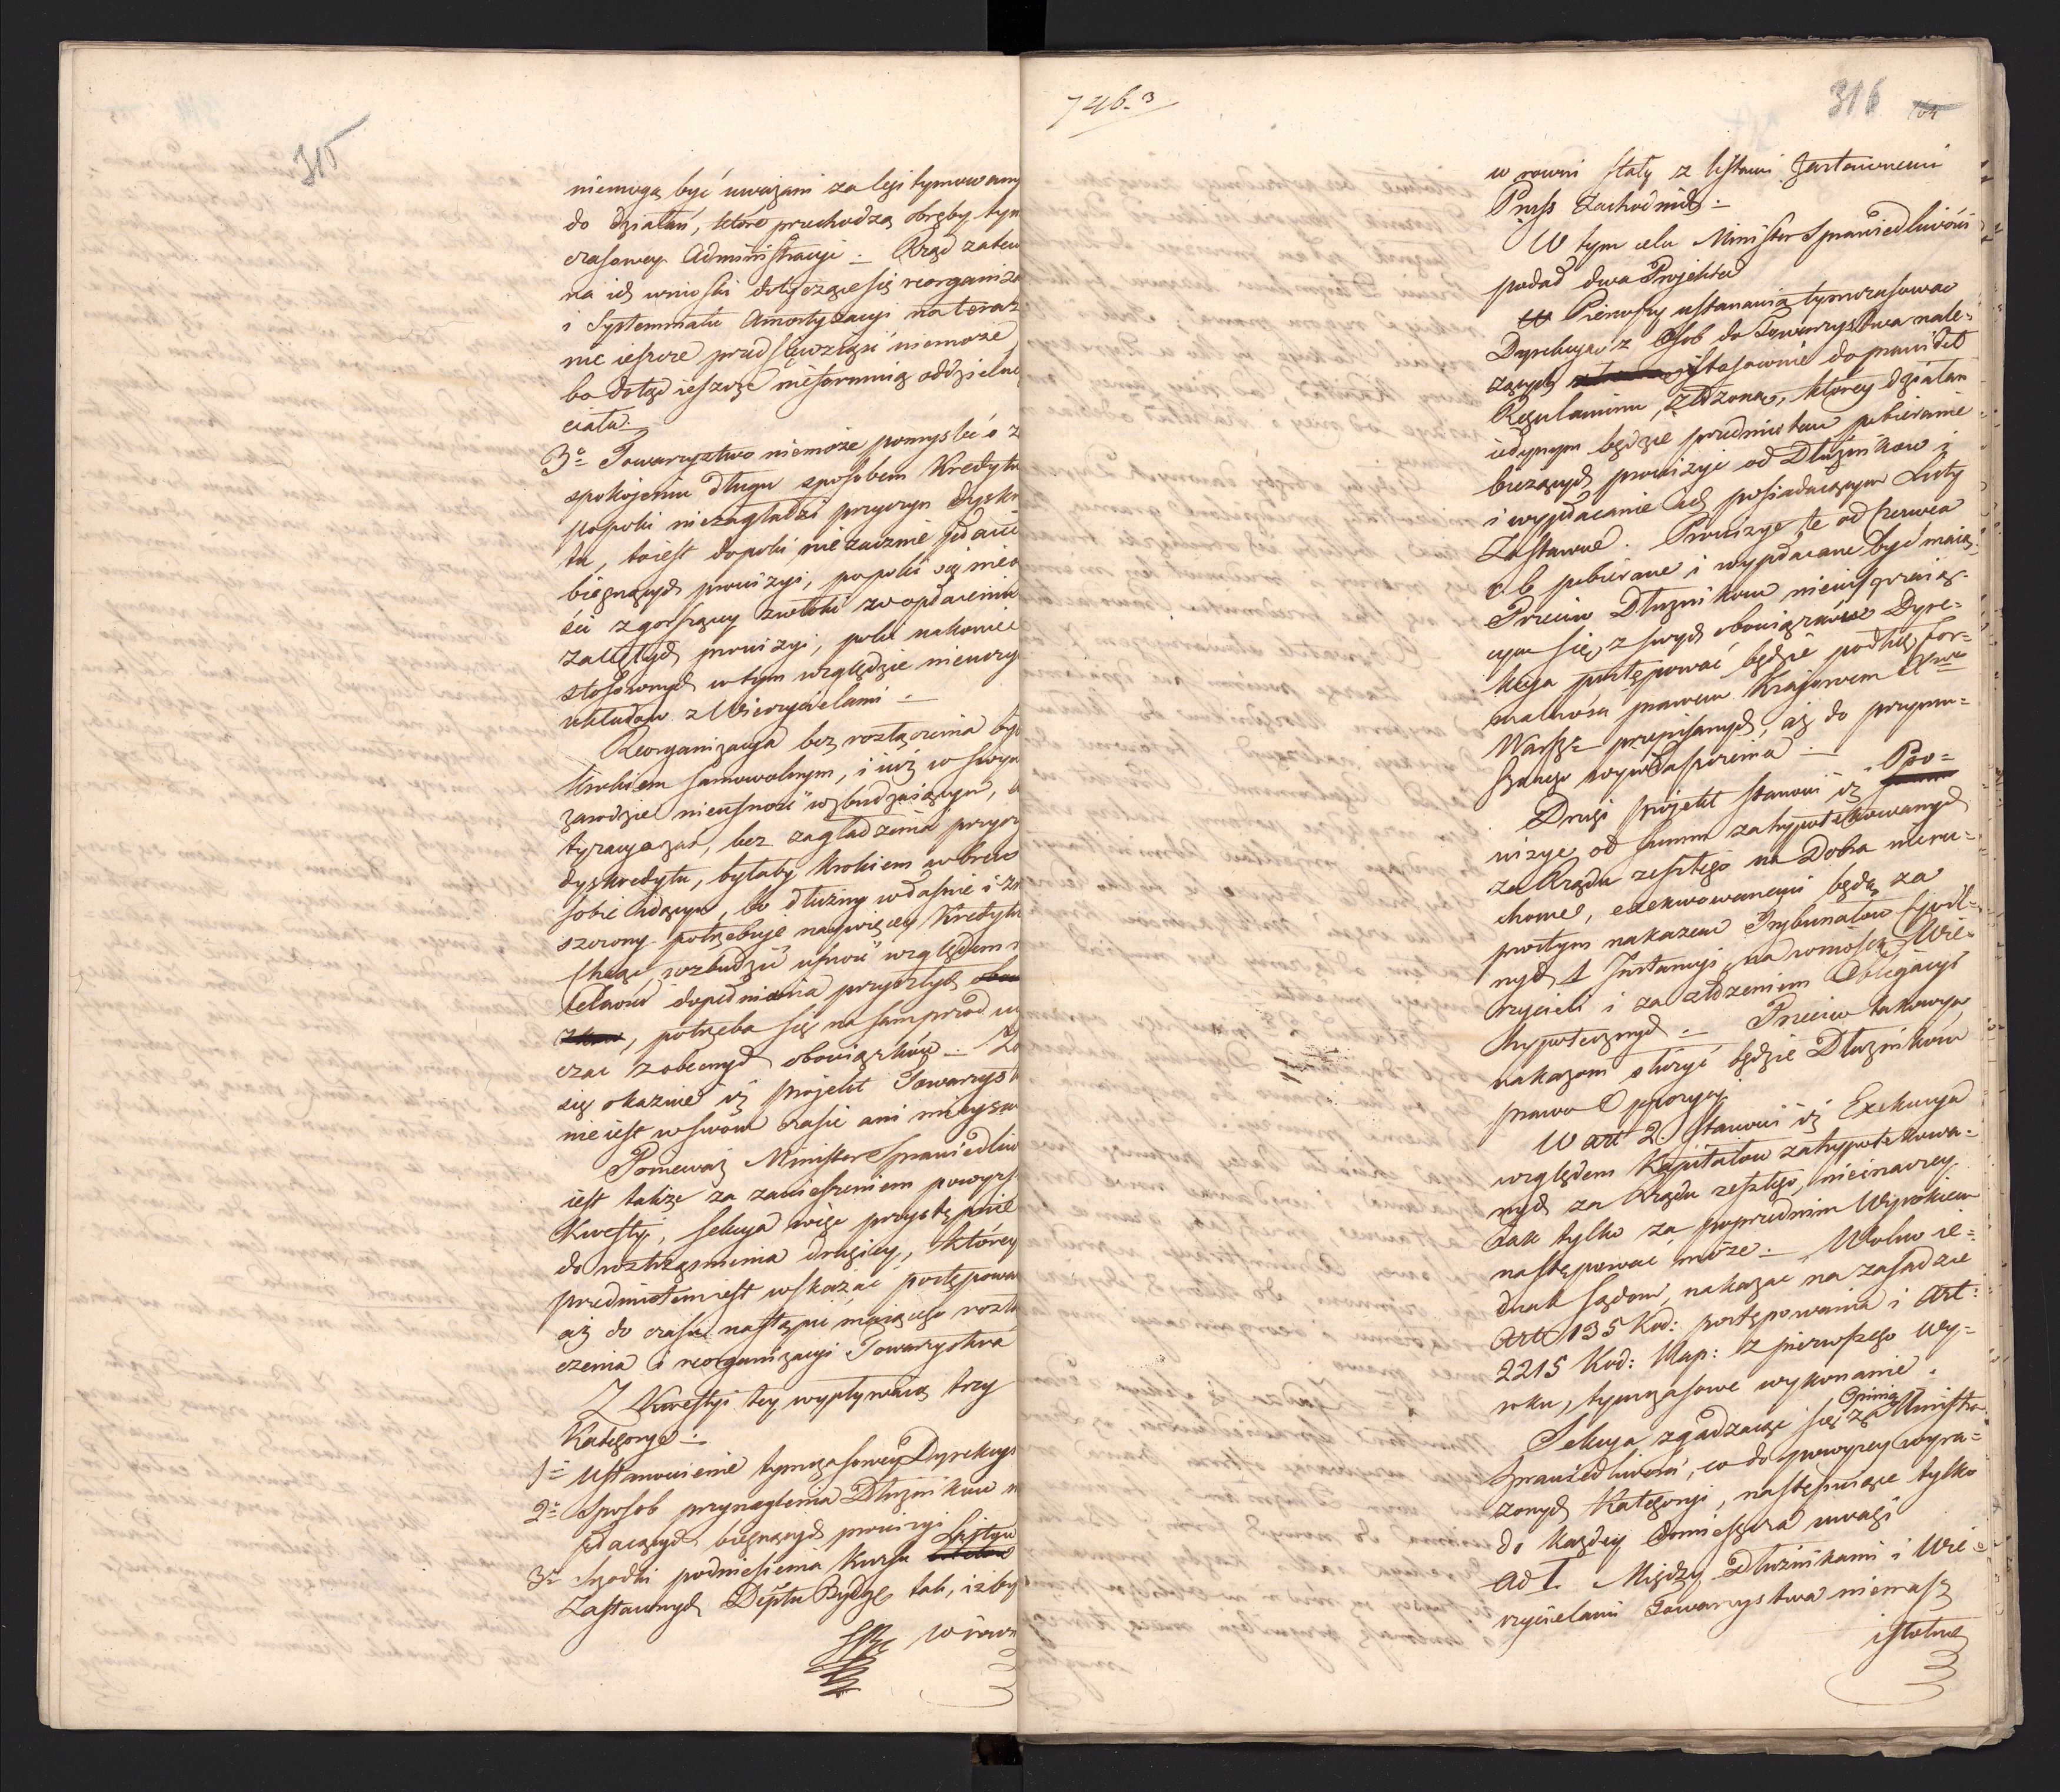 315
niemogą być uważani za legitymowany
do działań, które przechodzą obręby tym
czasowey Administracyi. Rząd zatem
na ich wnioski dotyczące się reorganiza
i Systemmatu Amortyzacyi na teraz
nic ieszcze przedsięwziąść niemoże,
bo dotąd ieszcze nieformuią oddzielne
ciała.
3o Towarzystwo niemoże pomyśleć o z
spokojeniu długu sposobem Kredytu
popoki niezagładzi przyczyn dyskre
tu, toiest dopoki nie zacznie płacić
biegnących prowizyi, popoki się nie
ści zgorszaiący zwłoki w opłaceniu
zaległych prowizyi, poki nakoniec
stosownych w tym względzie nieuczy
układow z Wierzycielami
Reorganizacya bez rozłączenia był
krokiem samowolnym, i iuż w swym
zarodzie nieufność wzbudzaiącym,
tyzacya zaś, bez zagładzenia przycz
dyskredytu, byłaby krokiem wbrew
sobie idącym, bo dłużny właśnie i
szczony potrzebuje naywięcey Kredytu
Chcąc wzbudzić ufność względem
telności dopełnienia przyszłych
, potrzeba się na samprzod
czać z obecnych obowiązków. Zo
się okazuie iż projekt Towarzyst
nie iest w swoim czasie ani mieyscu
Ponieważ Minister Sprawiedliw
iest także za zawieszeniem powyższ
Kwestyi, Sekcya więc przystępuie
do roztrząśnienia drugiey, którey
przedmiotem iest wskazać postępowa
aż do czasu nastąpić maiącego rozłą
czenia i reorganizacyi Towarzystwa
Z Kwestyi tey wypływaią trzy
Kategorye.
1o Ustanowienie tymczasowey Dyrekcyi
2o Sposob przynaglenia Dłużnikow n
płacących biegnących prowizyi
3o Srodki podniesienia Kursu Listow
Zastawnych Dēptu Bydg. tak, iżby
w rown
746.3
316
w rowni stały z listami Zastawnemi
Pruss Zachodnich.
W tym celu Minister Sprawiedliwości
podał dwa Projekta
Pierwszy ustanawia tymczasowo
Dyrekcyą z Osob do Towarzystwa nale=
żących stosownie do prawideł
Regulaminu złożoną, ktorey działań
iedynym będzie przedmiotem pobieranie
bieżących prowizyi od Dłużnikow i
i wypłacanie ich posiadaiącym Listy
Zastawne. Prowizye te od Czerwca
r b pobierane i wypłacane być maią.
Przeciw Dłużnikom nieuiszczaią=
cym się z swych obowiązkow Dyre=
kcya postępować będzie podług for=
malności prawem Krajowem Xwa
Warsz. przepisanych, aż do przymu=
szonego wywłaszczenia.
Drugi projekt stanowi iż Pro=
wizye od Summ zahypotekowanych
za Rządu zeszłego na Dobra nieru=
chome, exekwowanemi będą za
prostym nakazem Trybunałow Cywil=
nych 1 Instancyi na wniosek Wie=
rzycieli i za złożeniem Obligacyi
hypotecznych. Przeciw takowym
nakazom służyć będzie Dłużnikom
prawo Oppozycyi
W art 2. stanowi iż Exekucya
względem Kapitałow zahypotekowa=
nych za Rządu zeszłego, nieinaczey
iak tylko za poprzednim Wyrokiem
następować może. Wolno ie=
dnak Sądom, nakazać na zasadzie
Art 135 Kod: postępowania i Art:
2215 Kod: Nap: z pierwszego Wy=
roku, tymczasowe wykonanie.
Sekcya zgadzaiąc się z Opinią Ministra
Sprawiedliwości, co do powyżey wyra=
żonych Kategoryi, następuiące tylko
do każdey domieszcza uwagi
Ad 1. Między Dłużnikami i Wie=
rzycielami Towarzystwa niemasz
istotne